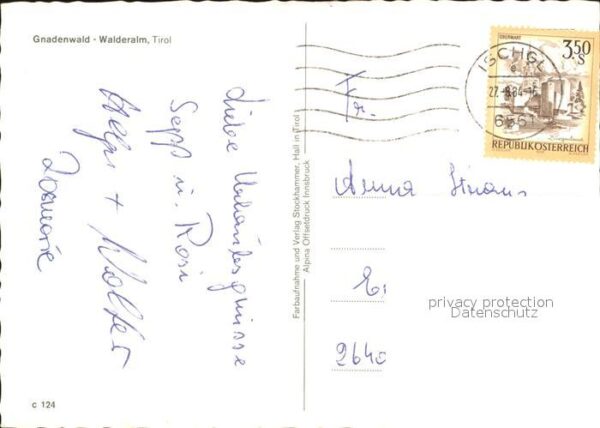 Gnadenwald - Walderalm, Tirol
Liebe Urlaubsgrüsse
Sepp u. Rosi
Helga + Walter
c 124
Farbaufnahme und Verlag Stockhammer, Hall in Tirol
Alpina Offsetdruck Innsbruck
3.50
S
REPUBLIK ÖSTERREICH
ISCHGL
6561
Fr.
Anna
E.
2640
privacy protection
Datenschutz